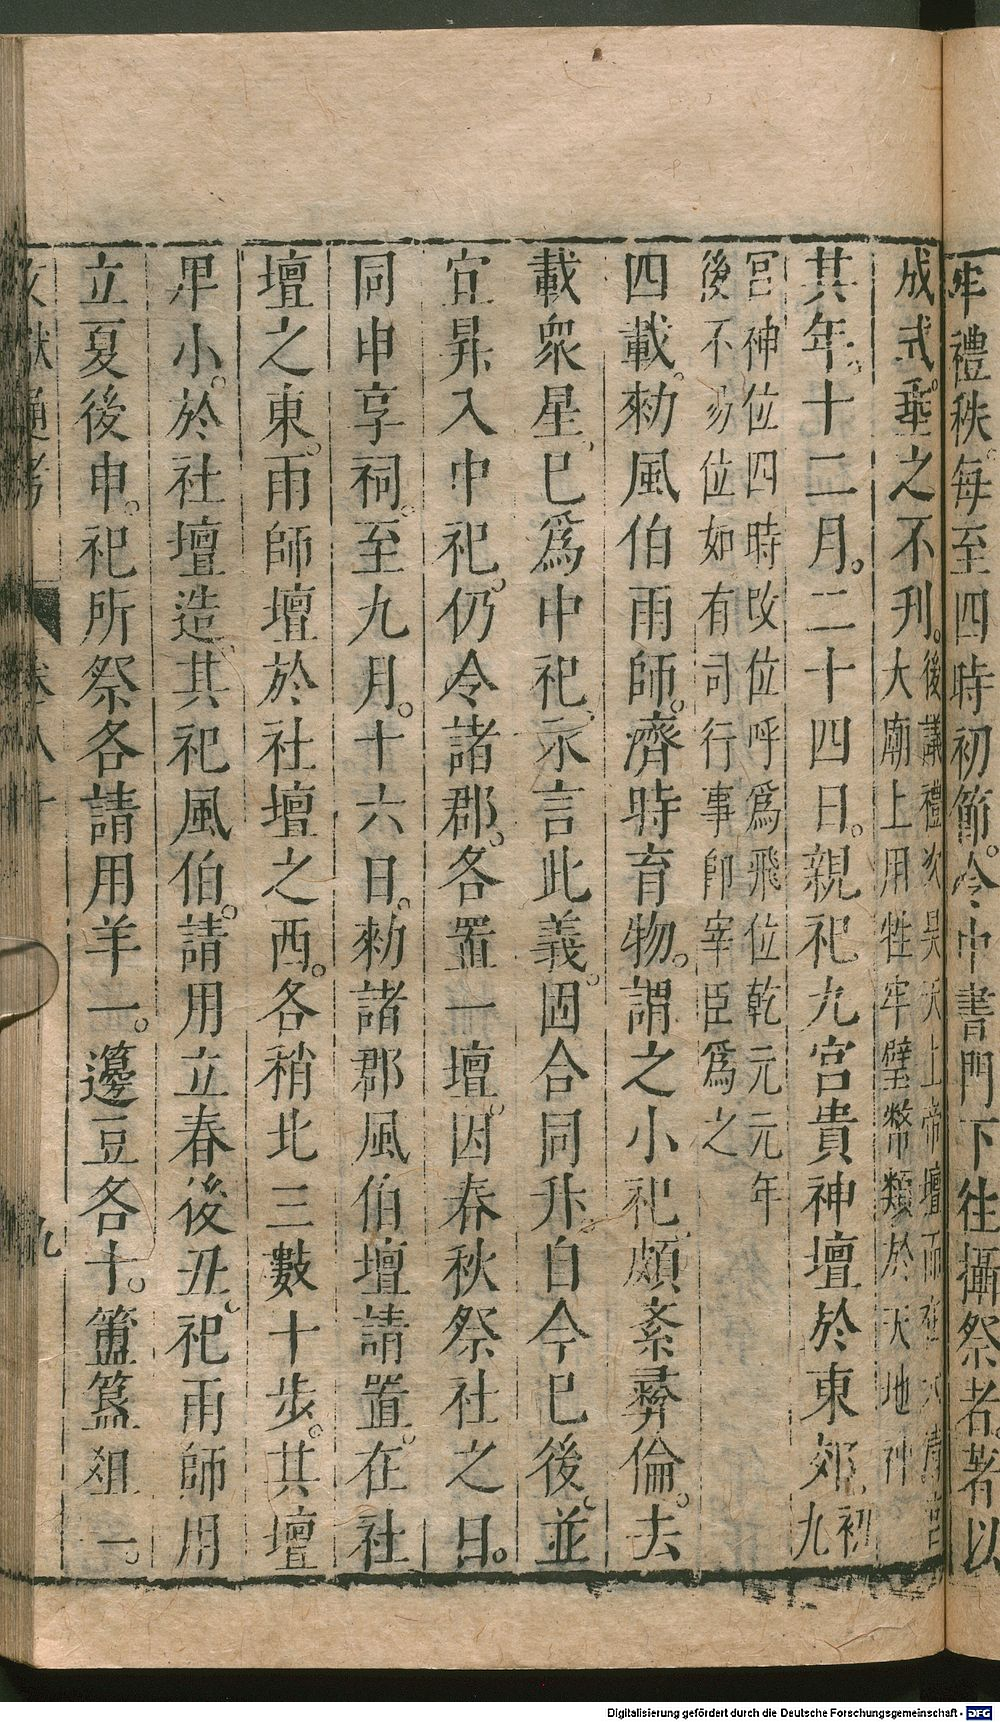 牢禮秩。每至四時初節。令中書門下往攝祭者。著以
成式。垂之不刊。後議禮次昊天上帝壇而在太清宮
大廟上用牲牢璧幣類於天地神
其年。十二月。二十四日。親祀九宮貴神壇於東郊。初
九
宮神位四時改位呼爲飛位乾元元年
後不易位如有司行事卽宰臣爲之
四載。勑風伯雨師。濟時育物。謂之小祀。頗紊彝倫。去
載衆星。已爲中祀。永言此義。固合同升。自今已後。並
宜昇入中祀。仍令諸郡。各置一壇。因春秋祭社之日。
同申享祠。至九月。十六日。勑諸郡風伯壇請置。在社
壇之東。雨師壇於社壇之西。各稍北三數十步。其壇
𤰞小。於社壇造。其祀風伯。請用立春後丑。祀雨師用
立夏後申。祀所祭各請用羊一。籩豆各十。簠簋俎一。
文獻通考
卷八十
九
Digitalisierung gefördert durch die Deutsche Forschungsgemeinschaft - DFG